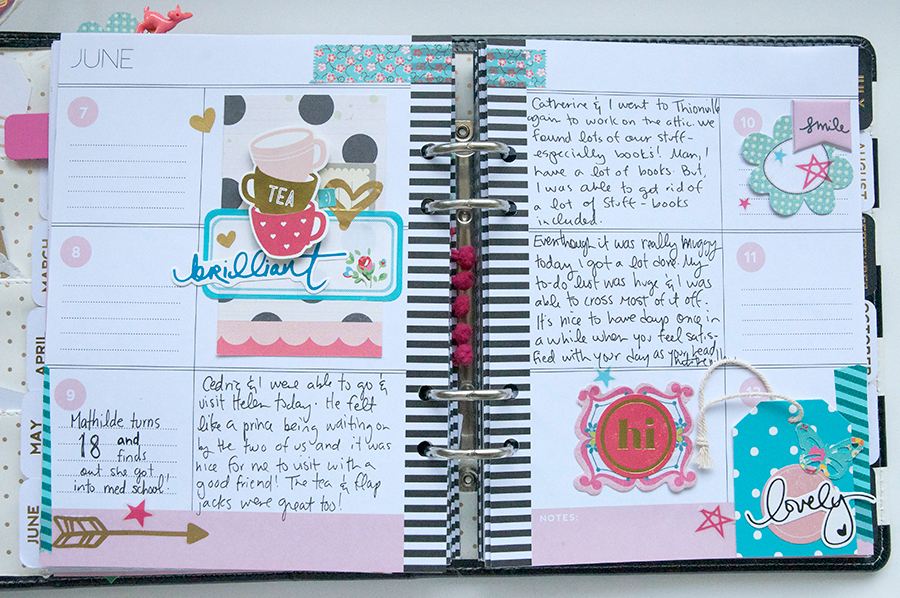 JUNE
7
TEA
brilliant
8
9
Mathilde turns
18 and
finds
out she got
into med school!
Cedric & I were able to go &
visit Helen today. He felt
like a prince being waiting on
by the two of us and it was
nice for me to visit with a
good friend! The tea & flap
jacks were great too!
MARCH
APRIL
MAY
JUNE
Catherine & I went to Thionville
again to work on the attic. We
found lots of our stuff-
especially books! Man, I
have a lot of books. But,
I was able to get rid of
a lot of stuff - books
included.
10
smile
Eventhough it was really muggy
today I got a lot done. My
to-do list was huge & I was
able to cross most of it off.
It's nice to have days once in
a while when you feel satis-
fied with your day as your head
11
hi
NOTES:
12
lovely
JULY
AUGUST
OCTOBER